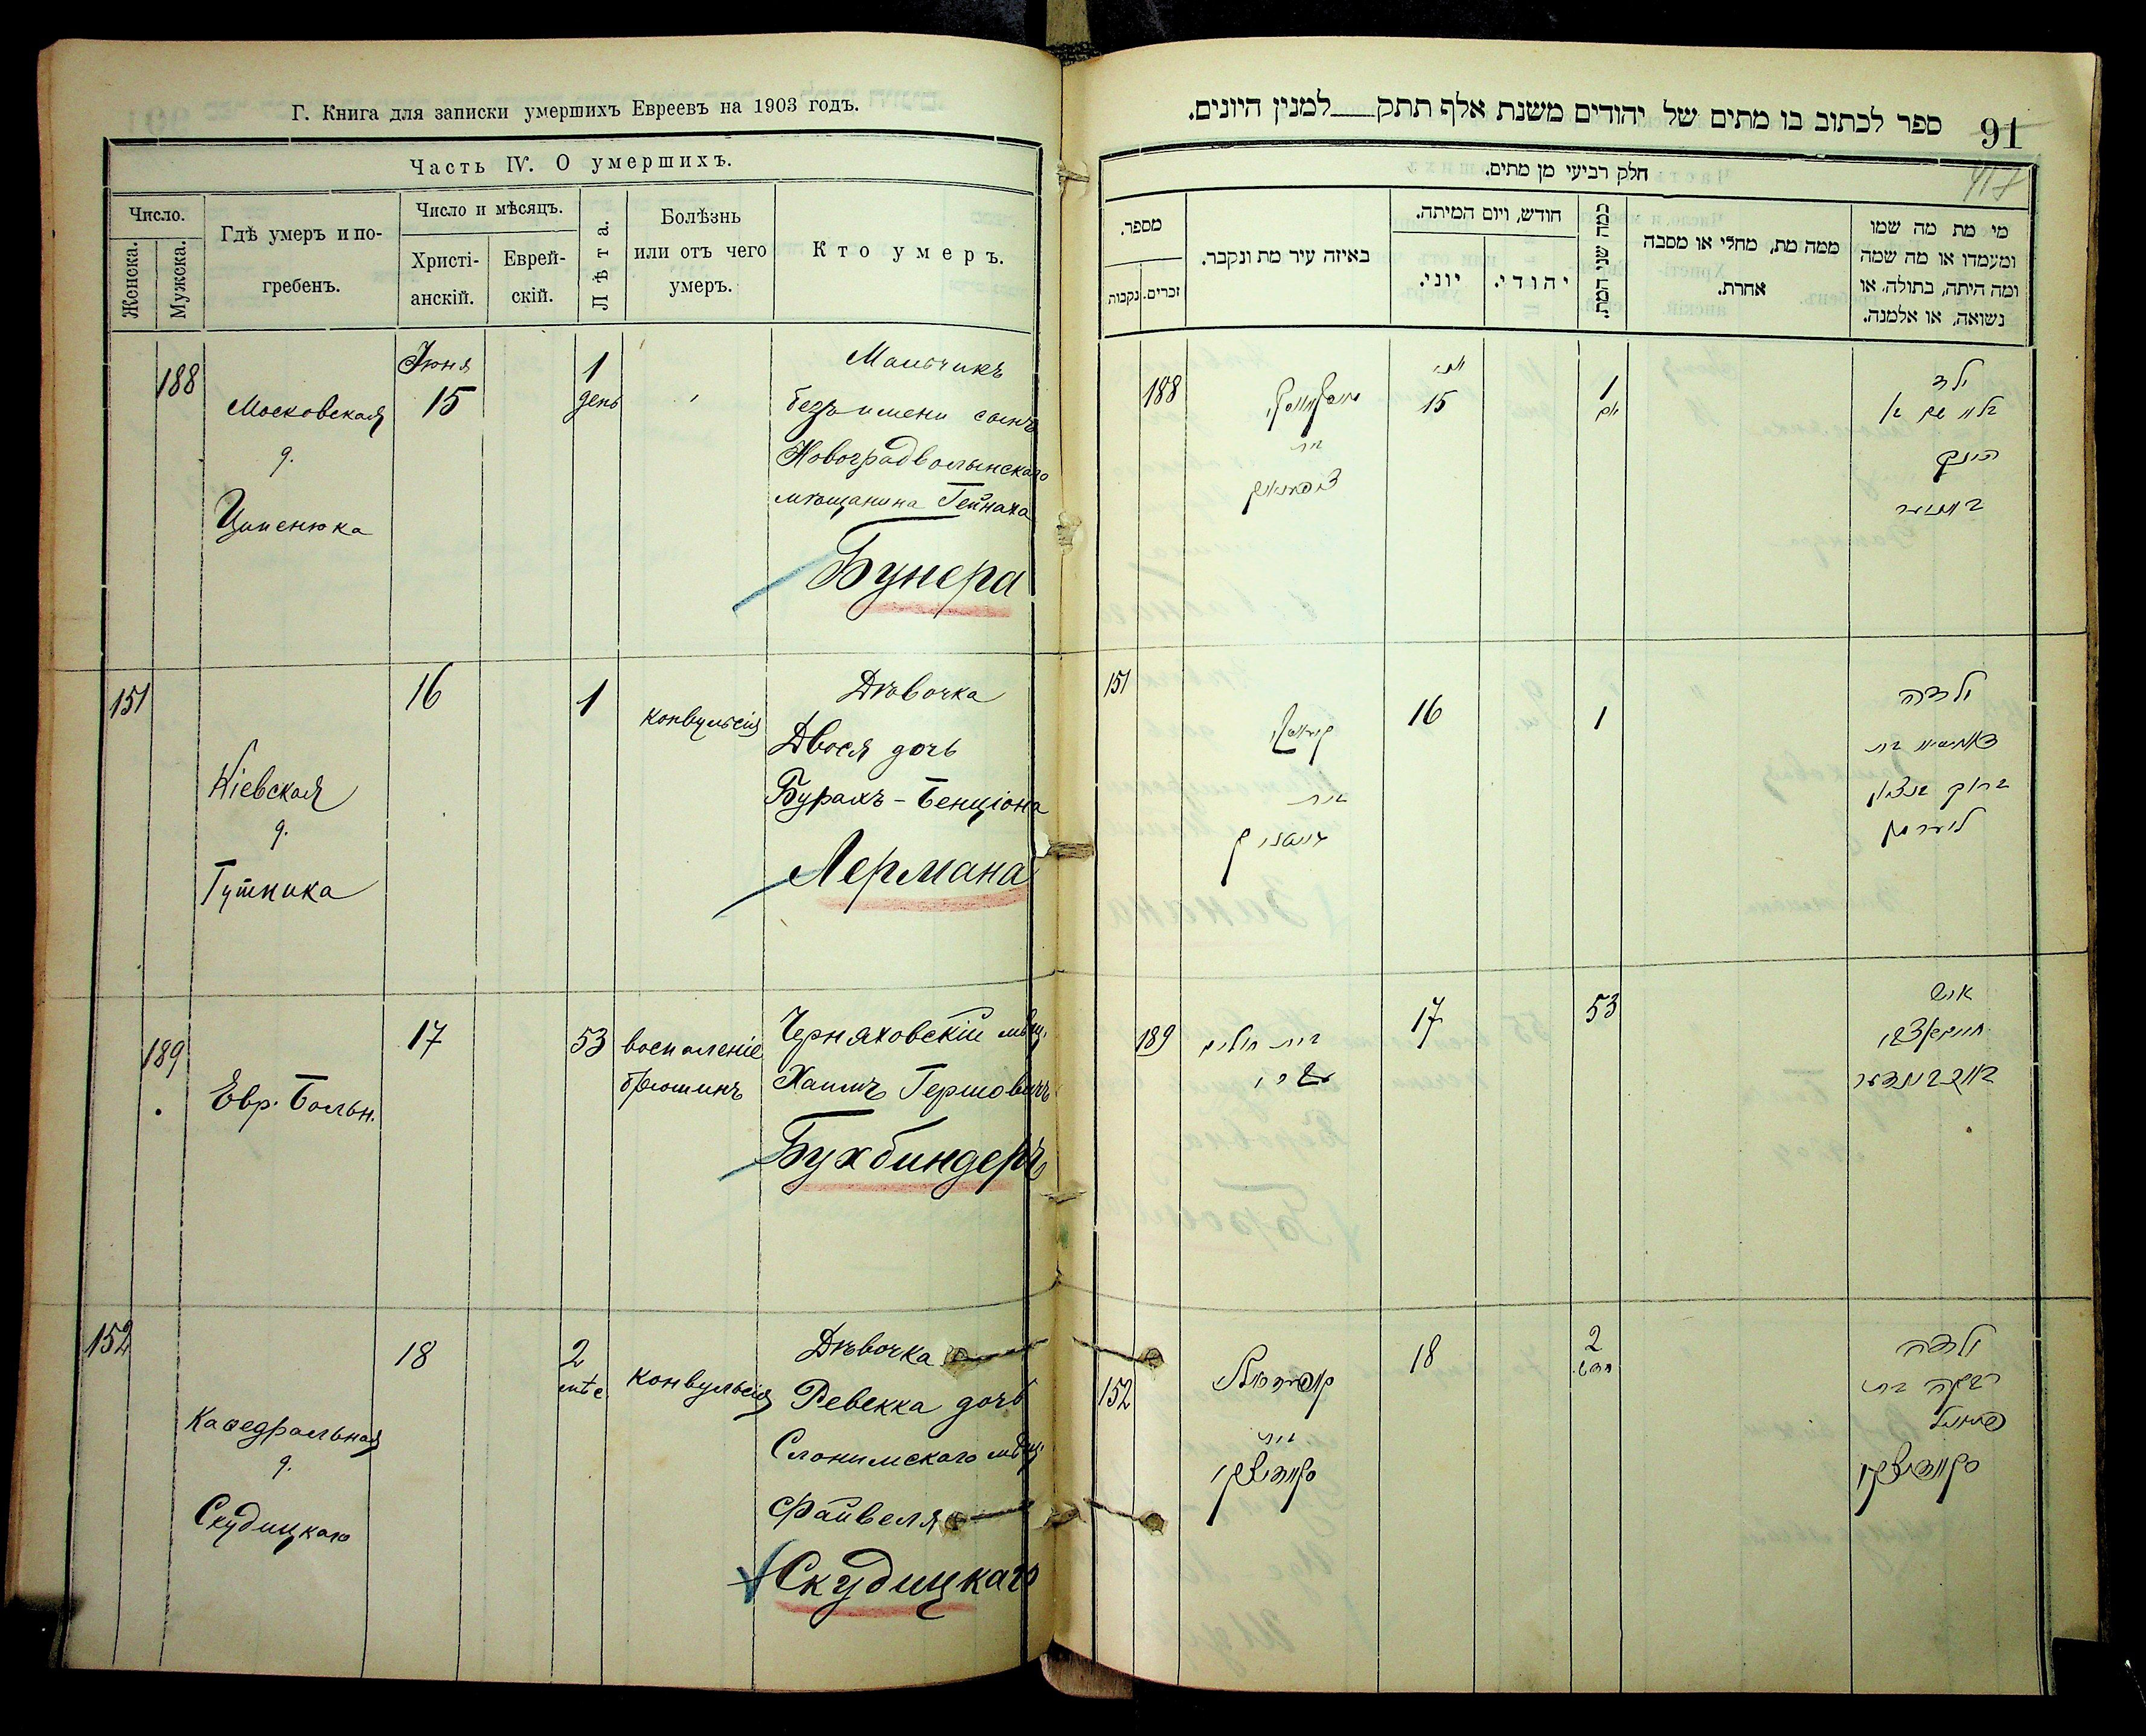 Г. Книга для записки умершихъ Евреевъ на 1903 годъ.
Часть IV. О умершихъ.
Число.
Женска.
Мужска.
Гдѣ умеръ и по-
гребенъ.
Число и мѣсяцъ.
Христі-
анскій.
Еврей-
скій.
Лѣта.
Болѣзнь
или отъ чего
умеръ.
Кто умеръ.
188
Московская
д.
Ципенюка
Іюня
15
1
день
Мальчикъ
безъ имени сынъ
Новоградволынскаго
мѣщанина Гейнаха
Бунера
151
Кіевская
д.
Гутника
16
1
конвульсія
Дѣвочка
Двося дочь
Бурахъ-Бенціона
Лермана
189
Евр. Больн.
17
53
воспаленіе
брюшинъ
Черняховскій мѣщ.
Хаимъ Гершовичъ
Бухбиндеръ
152
Каѳедральная
д.
Скудицкаго
18
2
мѣс
конвульсія
Дѣвочка
Ревекка дочь
Слонимскаго мѣщ.
Файвеля
Скудицкаго
91
ספר לכתוב בו מתים של יהודים משנת אלף תתק למנין היונים.
חלק רביעי מן מתים.
מספר.
זכרים.
נקבות
באיזה עיר מת ונקבר.
חודש, ויום המיתה.
יוני.
יהודי.
כמה שני המת.
ממה מת, מחלי או מסבה
אחרת.
מי מת מה שמו
ומעמדו או מה שמה
ומה היתה, בתולה, או
נשואה, או אלמנה.
188
בית
15
1
יום
ילד
151
בית
16
1
ילדה
ברוך בנציון
לערמאן
189
בית חולים
17
53
איש
בוכבינדער
152
בית
סקודיצקי
18
2
חדש
ילדה
רבקה בת
פייוויל
סקודיצקי